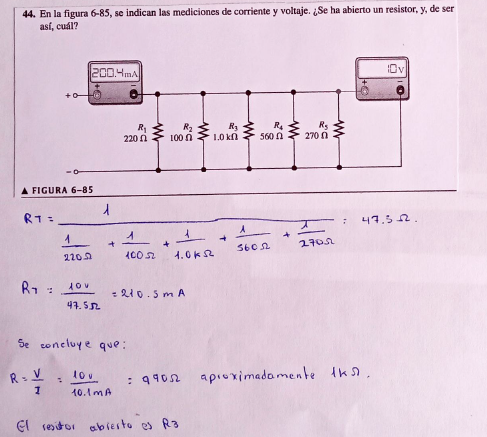 44. En la figura 6-85, se indican las mediciones de corriente y voltaje. ¿Se ha abierto un resistor, y, de ser
así, cuál?
200.4mA
10V
R₁ R₂ R₃ R₄ R₅
220 Ω 100 Ω 1.0 kΩ 560 Ω 270 Ω
▲ FIGURA 6-85
RT = 1 / (1/220Ω + 1/100Ω + 1/1.0KΩ + 1/560Ω + 1/270Ω) = 47.5 Ω.
RT = 10v/47.5Ω = 210.5 mA
Se concluye que:
R = V/I = 10v/10.1mA = 990Ω aproximadamente 1kΩ.
El resistor abierto es R3